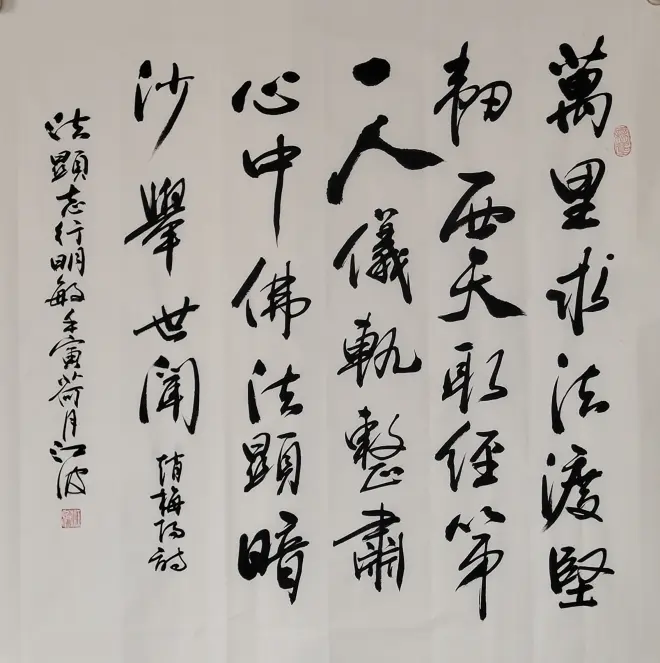 萬里求法渡堅
韌西天取經第
一人儀軌整肅
心中佛法顯暗
沙舉世聞
趙梅陽詩
法顯志行明敏壬寅荷月江波